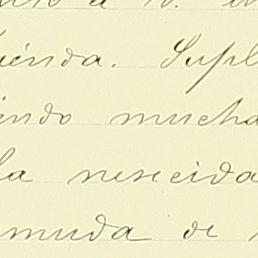 ienda. Supl
iendo mucha
la nesecida
muda de